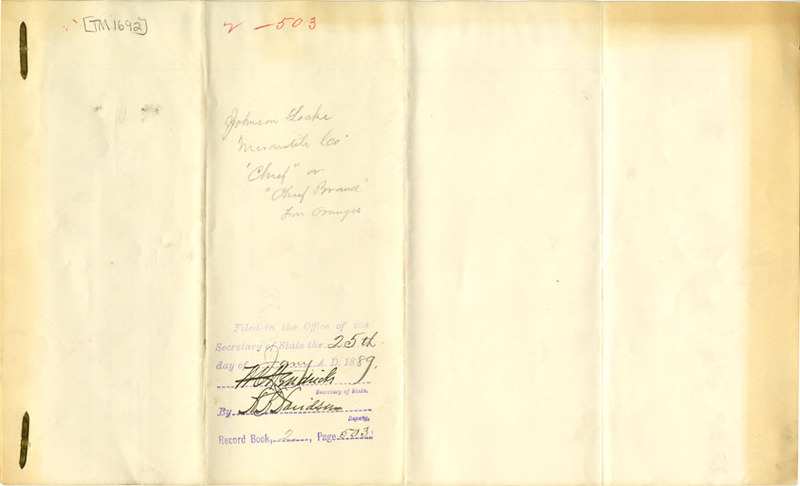 [TM1692]
2 — 503
Johnson Locke
Mercantile Co
"Chief" or
"Chief Brand"
for Oranges
Filed in the Office of the
Secretary of State the 25th
day of Jany A. D. 1889.
W C Hendricks
Secretary of State.
By L. B. Davidson
Deputy.
Record Book, 2, Page 503.